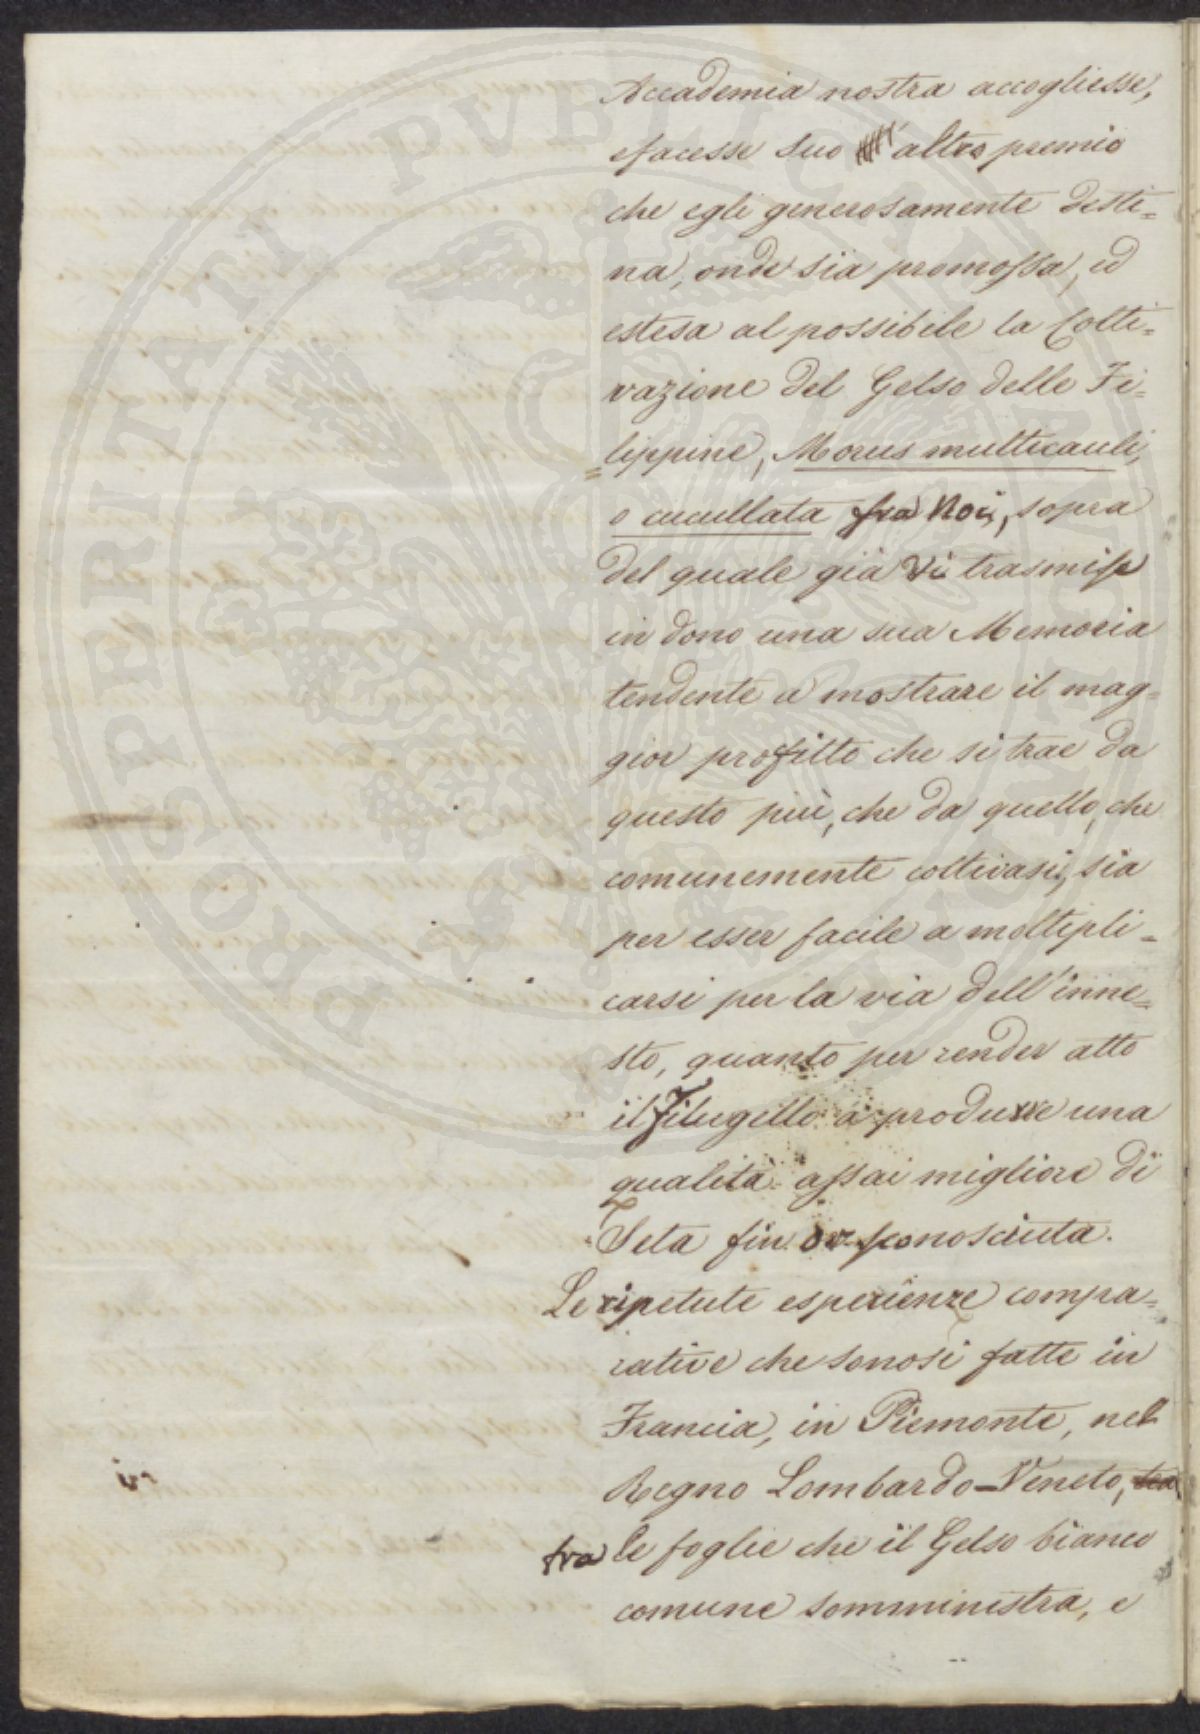 Accademia nostra accogliesse,
e facesse suo altro premio
che egli generosamente desti=
na, onde sia promossa, ed
estesa al possibile la Colti=
vazione del Gelso delle Fi=
=lippine, Morus multicauli,
o cucullata fra noi, sopra
del quale già Vi trasmise
in dono una sua Memoria
tendente a mostrare il mag=
gior profitto che si trae da
questo più, che da quello, che
comunemente coltivasi, sia
per esser facile a moltipli=
carsi per la via dell'inne=
sto, quanto per render atto
il Filugello a produrre una
qualità assai migliore di
Seta fin or sconosciuta.
Le ripetute esperienze compa=
rative che sonosi fatte in
Francia, in Piemonte, nel
Regno Lombardo-Veneto, tra
fra le foglie che il Gelso bianco
comune somministra, e
PROSPERITATI PVBLICAE